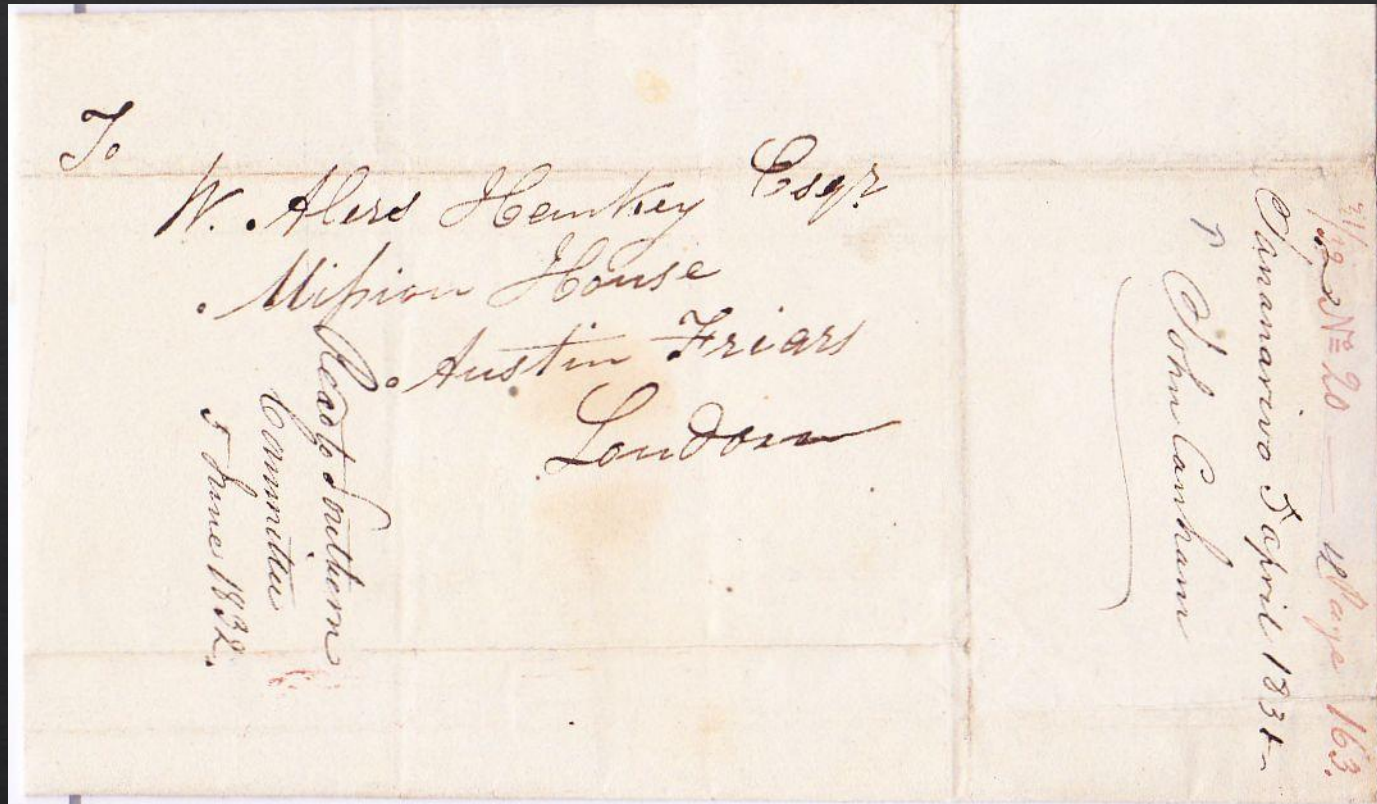 To
W. Alers Hankey Esqr
Mission House
Austin Friars
London
Read to Southern
Committee
5 June 1832.
No 20 — Page 163.
Tananarivo 5 April 1831
John Canham